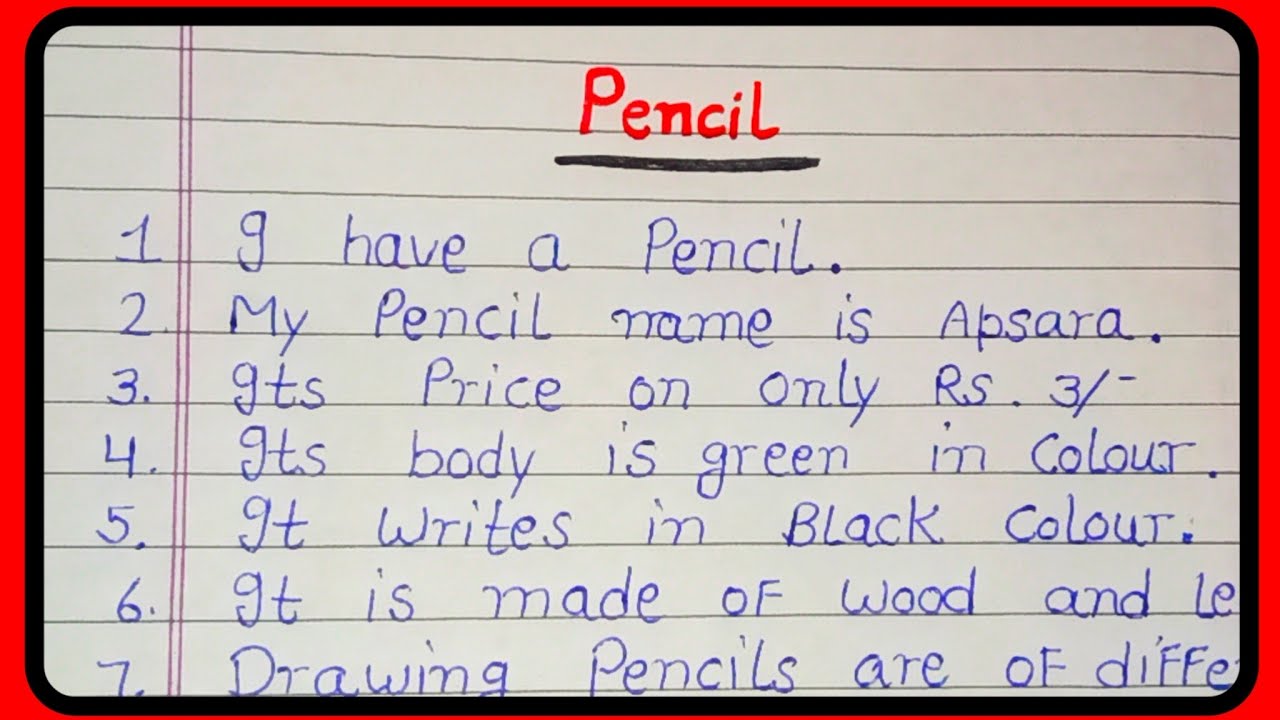 Pencil
1 I have a Pencil.
2. My Pencil name is Apsara.
3. Its Price on only Rs. 3/-
4. Its body is green in Colour.
5. It writes in BLack Colour.
6. It is made of wood and
7. Drawing Pencils are of